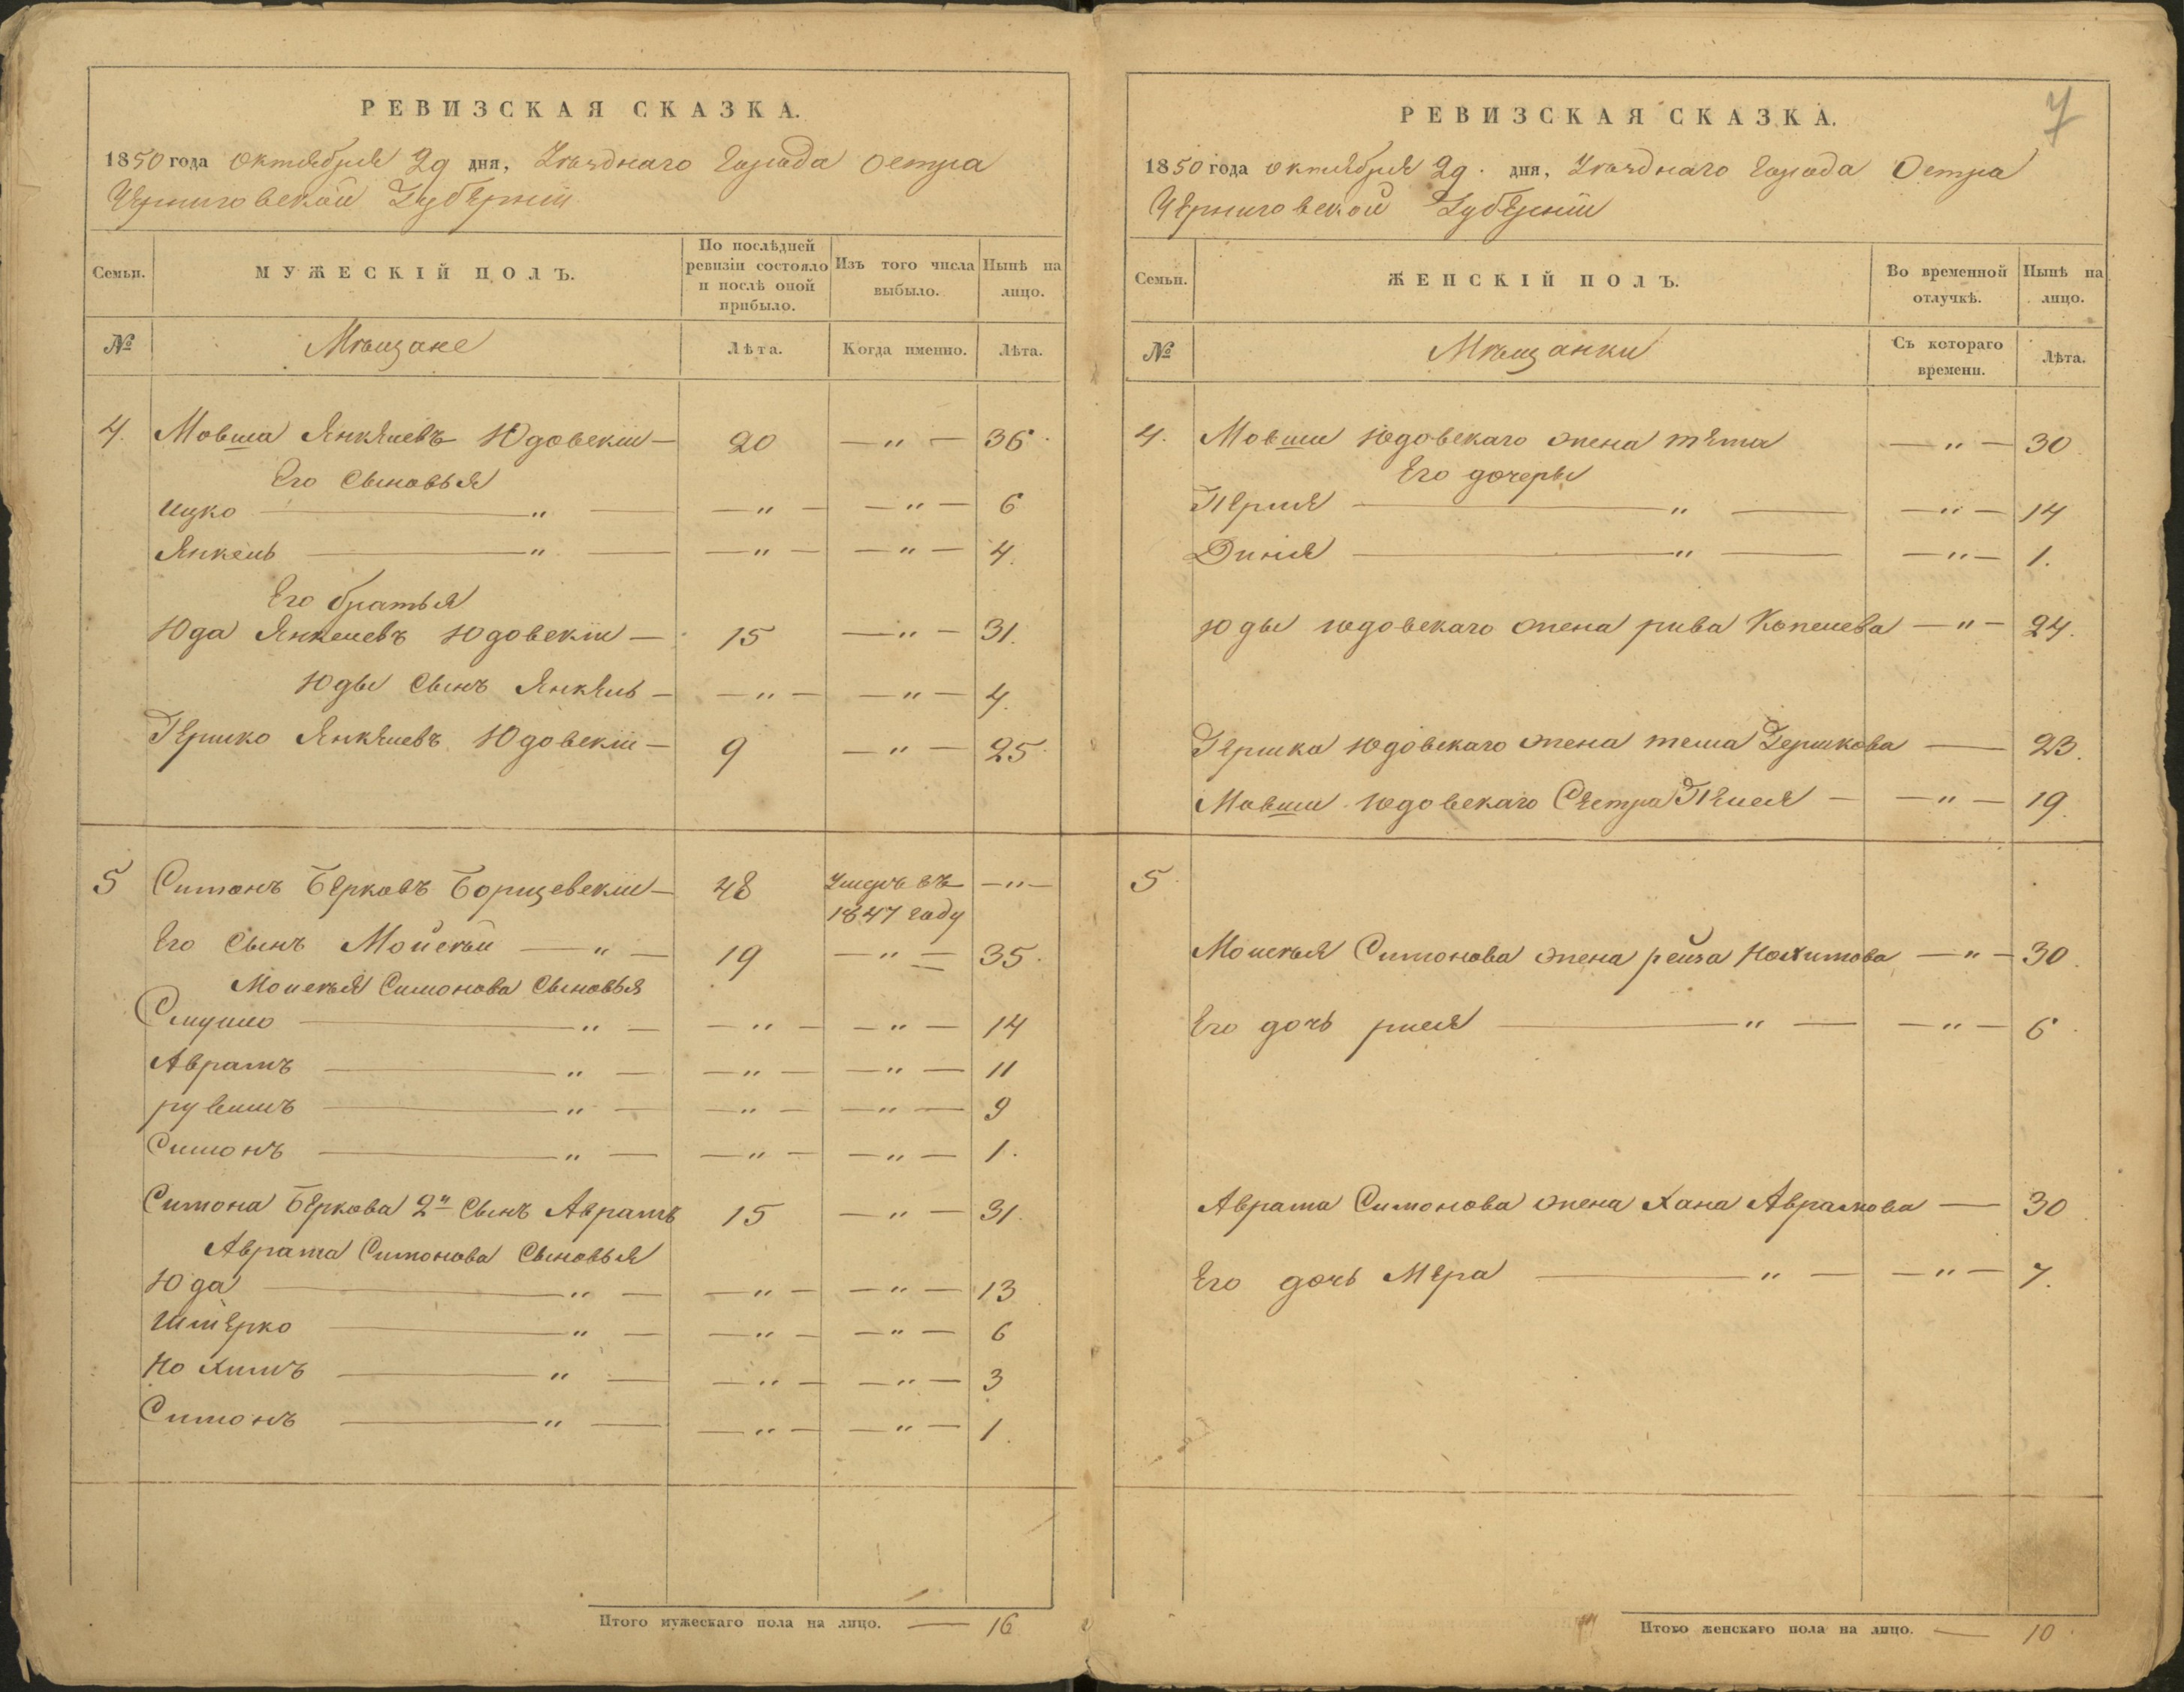 РЕВИЗСКАЯ СКАЗКА.
1850 года октября 29 дня, Уѣзднаго Города Остра
Черниговской Губерніи
Семьи.
МУЖЕСКІЙ ПОЛЪ.
По послѣдней ревизіи состояло и послѣ оной прибыло.
Изъ того числа выбыло.
Нынѣ на лицо.
№ Мѣщане Лѣта. Когда именно. Лѣта.
4. Мовша Янкелевъ Юдовскій — 20 — " — 36.
Его Сыновья
Ицко — " — — " — — " — 6
Янкель — " — — " — — " — 4.
Его братья
Юда Янкелевъ Юдовскій — 15 — " — 31.
Юды Сынъ Янкель — — " — — " — 4.
Гершко Янкелевъ Юдовскій — 9 — " — 25.
5 Симонъ Берковъ Борщевскій — 48 Умеръ въ 1847 году — " —
Его Сынъ Мойсѣй — " — 19 — " — 35.
Моисѣя Симонова Сыновья
Смуило — " — — " — — " — 14
Аврамъ — " — — " — — " — 11
рувимъ — " — — " — — " — 9
Симонъ — " — — " — — " — 1.
Симона Беркова 2й Сынъ Аврамъ 15 — " — 31.
Аврама Симонова Сыновья
Юда — " — — " — — " — 13
Шмерко — " — — " — — " — 6
Нохимъ — " — — " — — " — 3
Симонъ — " — — " — — " — 1.
Итого мужескаго пола на лицо. — 16
7
РЕВИЗСКАЯ СКАЗКА.
1850 года октября 29. дня, Уѣзднаго Города Остра
Черниговской Губерніи
Семьи.
ЖЕНСКІЙ ПОЛЪ.
Во временной отлучкѣ.
Нынѣ на лицо.
№ Мѣщанки Съ котораго времени. Лѣта.
4. Мовши Юдовскаго жена — " — 30.
Его дочеры
Перля — " — — " — 14
Диня — " — — " — 1.
Юды Юдовскаго жена рива Копелева — " — 24.
Гершка Юдовскаго жена Гершкова — 23.
Мовши Юдовскаго Сестра Песя — — " — 19.
5.
Моисѣя Симонова жена рейза Нохимова — " — 30.
Его дочь — " — — " — 6.
Аврама Симонова жена Хана Аврамова — 30
Его дочь Мера — " — — " — 7.
Итого женскаго пола на лицо. — 10.